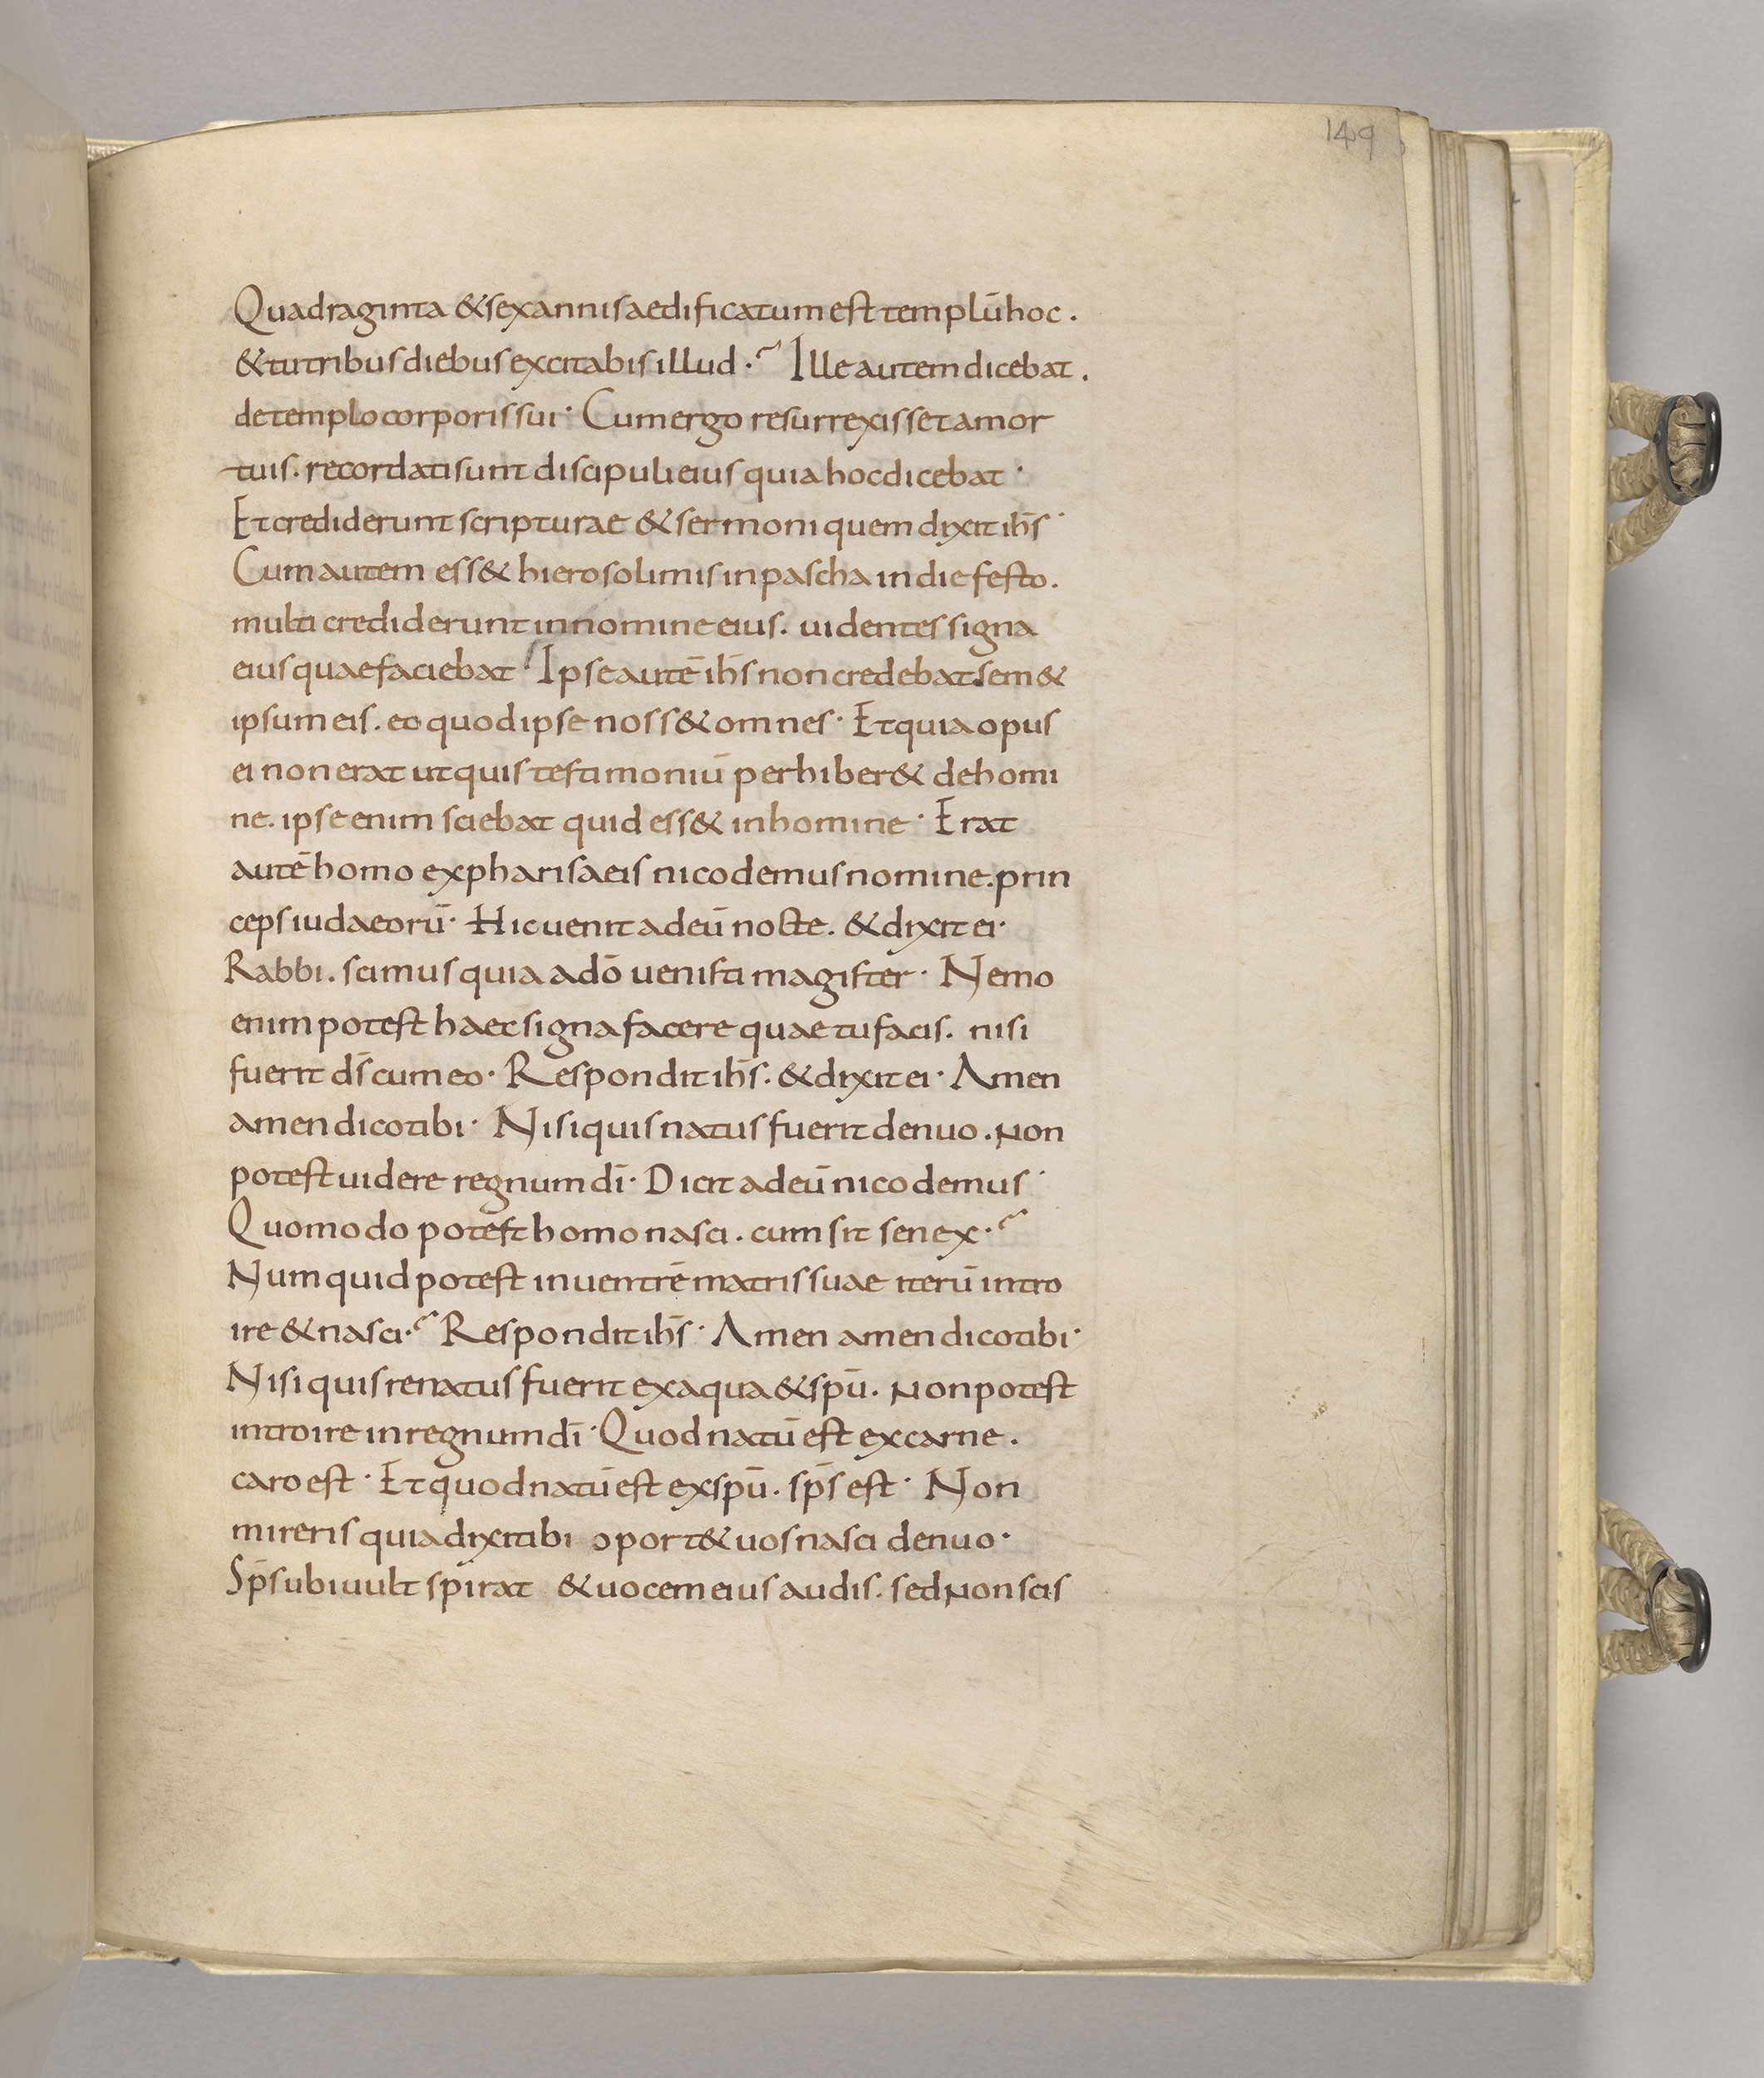 149
Quadraginta & sex annis aedificatum est templū hoc .
& tu tribus diebus excitabis illud .~ Ille autem dicebat .
de templo corporis sui · Cum ergo resurrexisset amor
tuis . recordati sunt discipuli eius quia hoc dicebat ·
Et crediderunt scripturae & sermoni quem dixit ihs̄ ·
Cum autem ess& hierosolimis in pascha in die festo .
multi crediderunt in nomine eius . uidentes signa
eius quae faciebat · Ipse autē ihs̄ non credebat sem&
ipsum eis . eo quod ipse noss& omnes · Et quia opus
ei non erat ut quis testimoniū perhiber& de homi
ne . ipse enim sciebat quid ess& in homine · Erat
autē homo ex pharisaeis nicodemus nomine . prin
ceps iudaeorū · Hic uenit ad eū nocte . & dixit ei ·
Rabbi . scimus quia a dō uenisti magister · Nemo
enim potest haec signa facere quae tu facis . nisi
fuerit ds̄ cum eo · Respondit ihs̄ . & dixit ei · Amen
amen dico tibi · Nisi quis natus fuerit denuo . Non
potest uidere regnum dī · Dicit ad eū nicodemus ·
Quomodo potest homo nasci . cum sit senex .~
Numquid potest in uentrē matris suae iterū intro
ire & nasci .~ Respondit ihs̄ · Amen amen dico tibi ·
Nisi quis renatus fuerit ex aqua & spū . Non potest
introire in regnum dī · Quod natū est ex carne .
caro est · Et quod natū est ex spū . sp̄s est · Non
mireris quia dixi tibi oport& uos nasci denuo ·
Sp̄s ubi uult spirat & uocem eius audis . sed Non scis